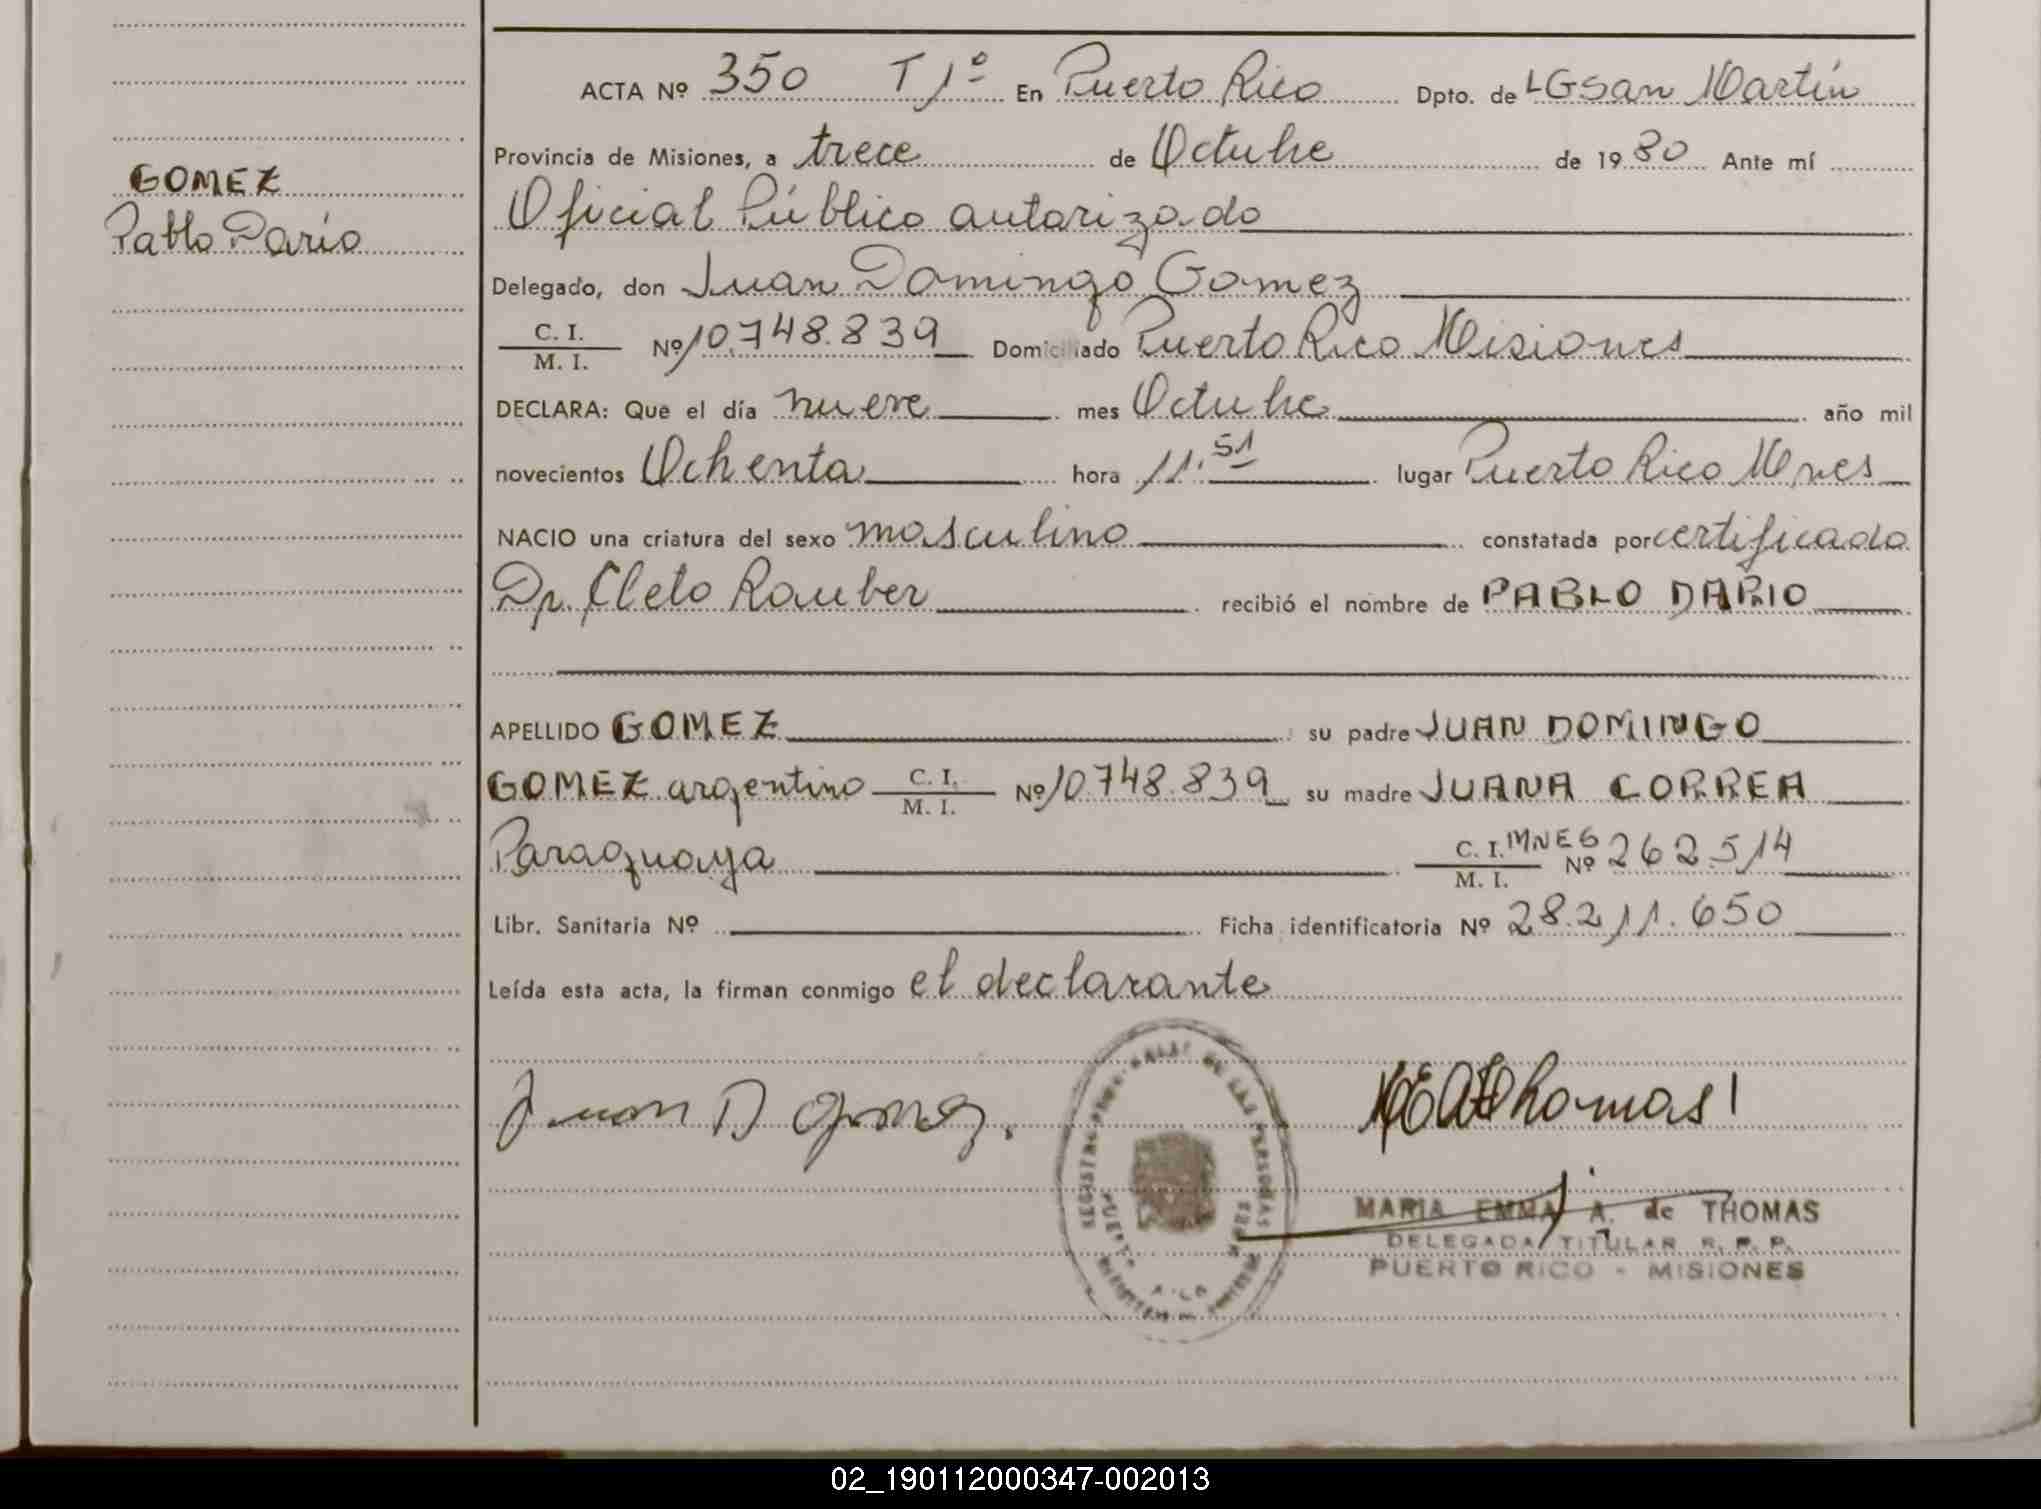 ACTA Nº 350 T 1º En Puerto Rico Dpto. de LGSan Martín
Provincia de Misiones, a trece de Octubre de 1980 Ante mí
GOMEZ
Pablo Darío
Oficial Público autorizado
Delegado, don Juan Domingo Gomez
C. I.
M. I. Nº 10.748.839 Domiciliado Puerto Rico Misiones
DECLARA: Que el día nueve mes Octubre año mil
novecientos Ochenta hora 11.51 lugar Puerto Rico Mnes
NACIO una criatura del sexo masculino constatada por certificado
Dr. Cleto Rauber recibió el nombre de PABLO DARIO
APELLIDO GOMEZ su padre JUAN DOMINGO
GOMEZ argentino C. I. M. I. Nº 10.748.839 su madre JUANA CORREA
Paraguaya C. I. MNES M. I. Nº 262.514
Libr. Sanitaria Nº Ficha identificatoria Nº 28.211.650
Leída esta acta, la firman conmigo el declarante
Juan D Gomez.
MEAdeThomas
REGISTRO DE LAS PERSONAS
PUERTO RICO
MARIA EMMA A. de THOMAS
DELEGADA TITULAR R. P. P.
PUERTO RICO - MISIONES
02_190112000347-002013